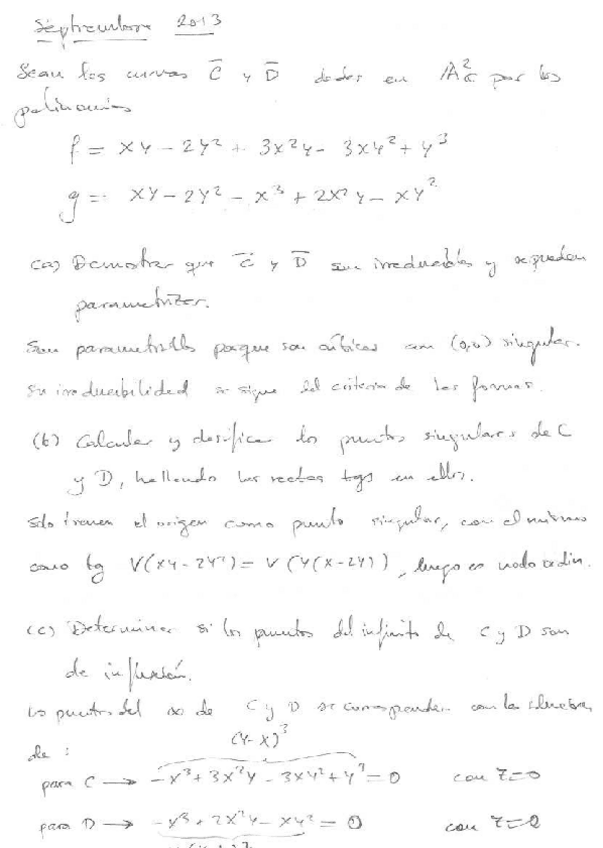 Septiembre 2013
Sean las curvas C̅ y D̅ dadas en A²_C por los
polinomios
f = XY - 2Y² + 3X²Y - 3XY² + Y³
g = XY - 2Y² - X³ + 2X²Y - XY²
(a) Demostrar que C̅ y D̅ son irreducibles y se pueden
parametrizar.
Son parametrizables porque son cúbicas con (0,0) singular.
Su irreducibilidad se sigue del criterio de las formas.
(b) Calcular y clasificar los puntos singulares de C
y D, hallando las rectas tgs en ellos.
Sólo tienen el origen como punto singular, con el mismo
cono tg V(XY-2Y²) = V(Y(X-2Y)), luego es nodo ordin.
(c) Determinar si los puntos del infinito de C y D son
de inflexión.
Los puntos del ∞ de C y D se corresponden con las
(Y-X)³
de:
para C → -X³ + 3X²Y - 3XY² + Y³ = 0 con Z=0
para D → -X³ + 2X²Y - XY² = 0 con Z=0